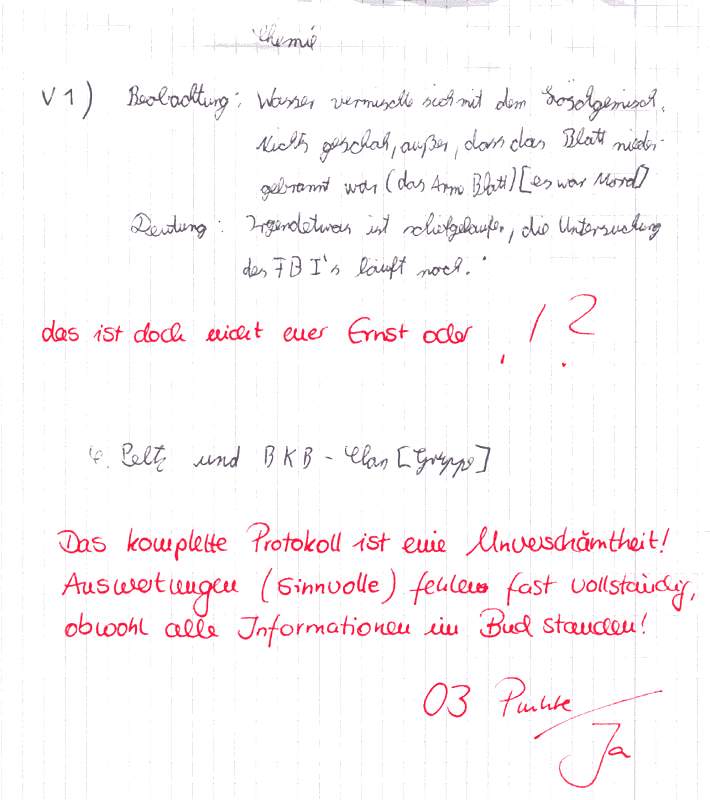 Chemie
V1) Beobachtung: Wasser vermischte sich mit dem Gemisch.
Nichts geschah, außer, dass das Blatt nieder-
gebrannt war (das Arme Blatt) [es war Mord]
Deutung: Irgendetwas ist schiefgelaufen, die Untersuchung
des FBI's läuft noch.
das ist doch nicht euer Ernst oder !?
Peltz und BKB - Clan [Gruppe]
Das komplette Protokoll ist eine Unverschämtheit!
Auswertungen (sinnvolle) fehlen fast vollständig,
obwohl alle Informationen im Buch standen!
03 Punkte
Ja